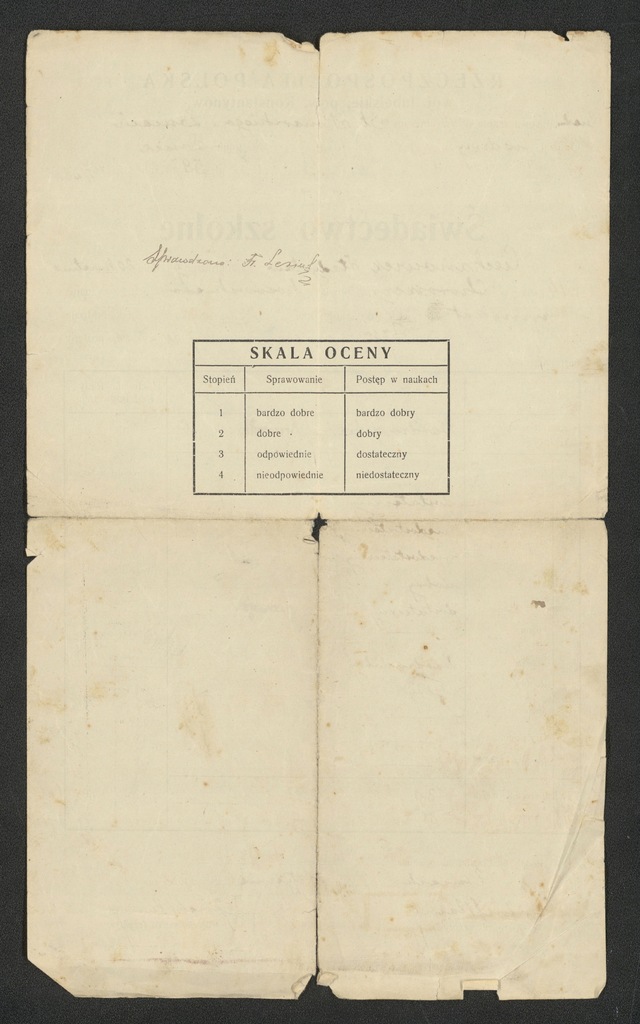 Sprawdzono: Fr.
SKALA OCENY
Stopień Sprawowanie Postęp w naukach
1 bardzo dobre bardzo dobry
2 dobre dobry
3 odpowiednie dostateczny
4 nieodpowiednie niedostateczny